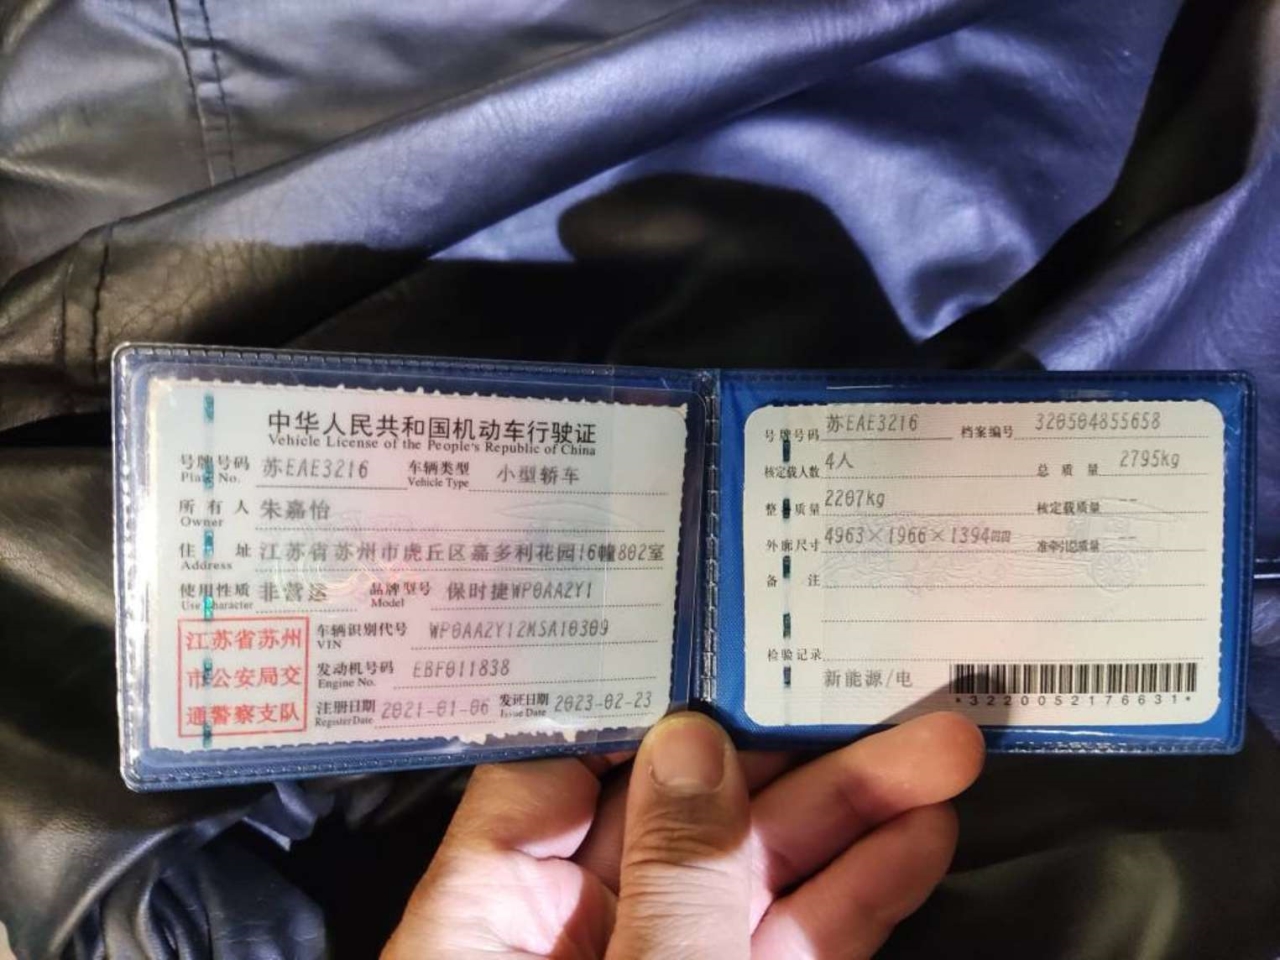 中华人民共和国机动车行驶证
Vehicle License of the People's Republic of China
号牌号码 苏EAE3216 车辆类型 小型轿车
Plate No. Vehicle Type
所有人 朱嘉怡
Owner
住址 江苏省苏州市虎丘区嘉多利花园16幢802室
Address
使用性质 非营运 品牌型号 保时捷WP0AA2Y1
Use Character Model
江苏省苏州
市公安局交
通警察支队
车辆识别代号 WP0AA2Y12MSA10309
VIN
发动机号码 EBF011838
Engine No.
注册日期 2021-01-06 发证日期 2023-02-23
Register Date Issue Date
号牌号码 苏EAE3216 档案编号 320504855658
核定载人数 4人 总质量 2795kg
整备质量 2207kg 核定载质量 --
外廓尺寸 4963×1966×1394mm 准牵引总质量 --
备注
检验记录
新能源/电
*3220052176631*